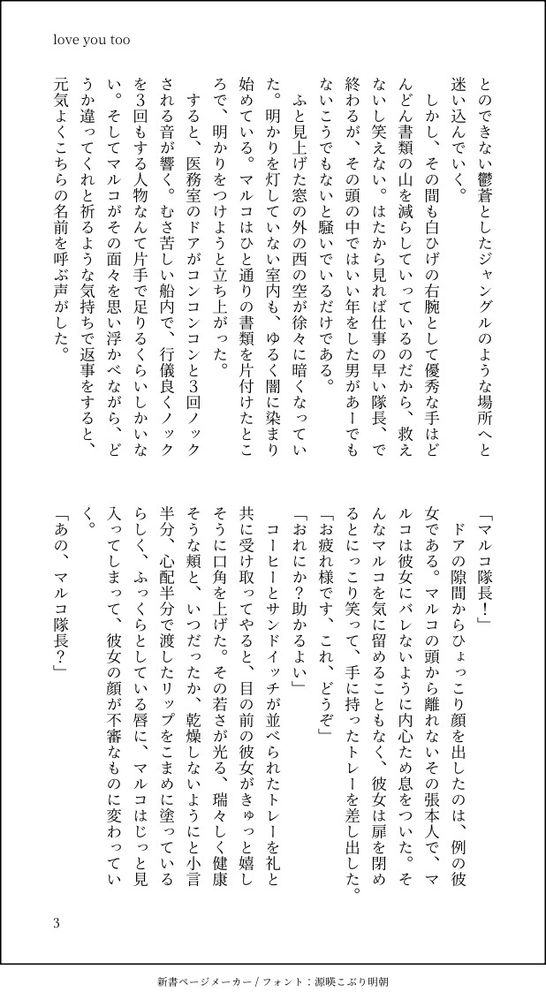 love you too
とのできない鬱蒼としたジャングルのような場所へと
迷い込んでいく。
　しかし、その間も白ひげの右腕として優秀な手はど
んどん書類の山を減らしていっているのだから、救え
ないし笑えない。はたから見れば仕事の早い隊長、で
終わるが、その頭の中ではいい年をした男があーでも
ないこうでもないと騒いでいるだけである。
　ふと見上げた窓の外の西の空が徐々に暗くなってい
た。明かりを灯していない室内も、ゆるく闇に染まり
始めている。マルコはひと通りの書類を片付けたとこ
ろで、明かりをつけようと立ち上がった。
　すると、医務室のドアがコンコンコンと３回ノック
される音が響く。むさ苦しい船内で、行儀良くノック
を３回もする人物なんて片手で足りるくらいしかいな
い。そしてマルコがその面々を思い浮かべながら、ど
うか違ってくれと祈るような気持ちで返事をすると、
元気よくこちらの名前を呼ぶ声がした。
「マルコ隊長！」
　ドアの隙間からひょっこり顔を出したのは、例の彼
女である。マルコの頭から離れないその張本人で、マ
ルコは彼女にバレないように内心ため息をついた。そ
んなマルコを気に留めることもなく、彼女は扉を閉め
るとにっこり笑って、手に持ったトレーを差し出した。
「お疲れ様です、これ、どうぞ」
「おれにか？助かるよい」
　コーヒーとサンドイッチが並べられたトレーを礼と
共に受け取ってやると、目の前の彼女がきゅっと嬉し
そうに口角を上げた。その若さが光る、瑞々しく健康
そうな頬と、いつだったか、乾燥しないようにと小言
半分、心配半分で渡したリップをこまめに塗っている
らしく、ふっくらとしている唇に、マルコはじっと見
入ってしまって、彼女の顔が不審なものに変わってい
く。
「あの、マルコ隊長？」
3
新書ページメーカー / フォント：源暎こぶり明朝